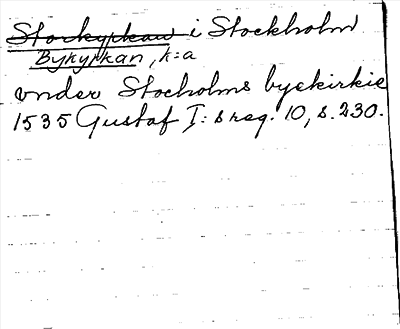 Storkyrkan i Stockholm
Bykyrkan, k:a
vnder Stocholms byekirkie
1535 Gustaf I:s reg. 10, s. 230.